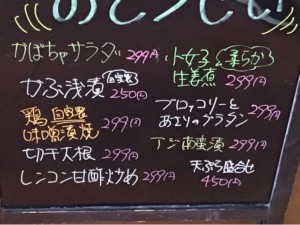 おとうし
かぼちゃサラダ 299円
かぶ浅漬 自家製 250円
鶏 自家製
味噌漬焼 299円
切干大根 299円
レンコン甘酢炒め 299円
小女子 柔らか
生姜煮 299円
ブロッコリーと
あさりのグラタン 299円
アジ南蛮漬 299円
天ぷら盛合せ
450円